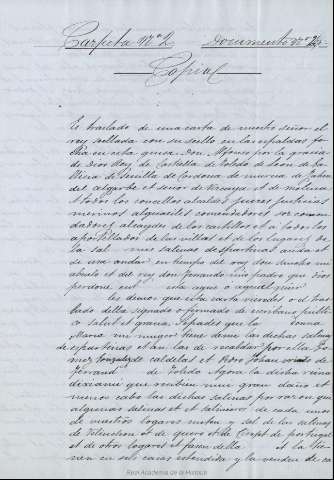 Carpeta Nº 2 Documento nº 2
Copia
Es traslado de una carta de nuestro señor el
rey sellada con su sello en las espaldas fe
cha en esta guisa. Don Alfonso por la gracia
de Dios Rey de Castilla de Toledo de Leon de Ga
llicia de Sevilla de Cordova de murcia de Jahen
del algarbe et señor de Viscaya et de molina
A todos los concellos alcaldes jueces justicias
merinos alguaciles comendadores soscomen
dadores alcaydes de los castillos et a todos los
aportellados de las villas et de los lugares do
la sal mis salinas de espartinas anda et
de usa andar en tiempo del rey don Sancho mi
abuelo et del rey don fernando mio padre que dios
perdone esta agua o aquel
les demos que esta carta vieredes o el tras
lado della signado o firmado de escribano publi
co salut et gracia Sepades que la donna
Maria mi muger tiene demas las dichas salinas
de espartinas et an las de recabdar por ella Go
mez Gonzalez de caldelas et Pero Johan
Ferrand de Toledo Agora la dicha reina
dixome que reciben muy gran daño et
menos cabo las dichas salinas por razon que
algunas salinas et salineros de cada uno
de vuestros logares meten y sal de las salinas
de Velinchon et de quero et de de portugal
et de otros logares et fasen della et la tie
nen en sus casas escondida y la venden de ca
Real Academia de la Historia